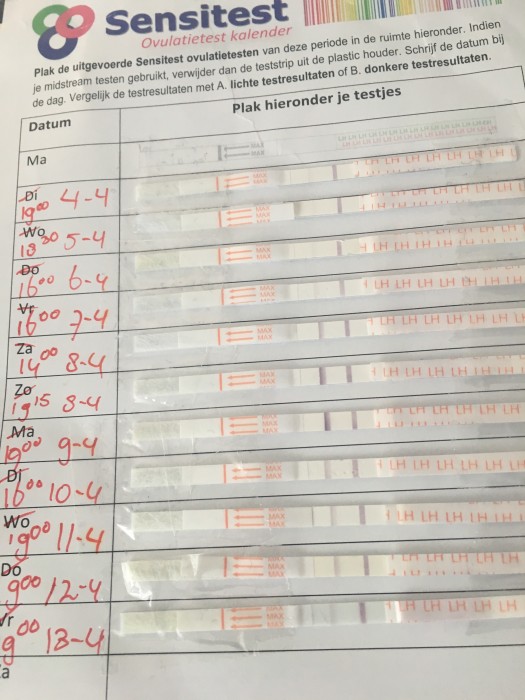 Sensitest
Ovulatietest kalender
Plak de uitgevoerde Sensitest ovulatietesten van deze periode in de ruimte hieronder. Indien
je midstream testen gebruikt, verwijder dan de teststrip uit de plastic houder. Schrijf de datum bij
de dag. Vergelijk de testresultaten met A. lichte testresultaten of B. donkere testresultaten.
Datum Plak hieronder je testjes
Ma MAX MAX
Di MAX MAX LH LH LH LH LH LH
19 00 4-4
Wo MAX MAX LH LH LH LH LH
18 30 5-4
Do MAX MAX LH LH LH LH LH LH
16 00 6-4
Vr MAX MAX LH LH LH LH LH LH
16 00 7-4
Za MAX MAX LH LH LH LH LH LH
14 00 8-4
Zo MAX MAX LH LH LH LH LH LH
19 15 8-4
Ma MAX MAX LH LH LH LH LH
19 00 9-4
Di MAX MAX LH LH LH LH LH LH
16 00 10-4
Wo MAX MAX LH LH LH LH LH
19 00 11-4
Do MAX MAX LH LH LH LH LH
9 00 12-4
Vr MAX MAX LH LH LH LH LH
9 00 13-4
a